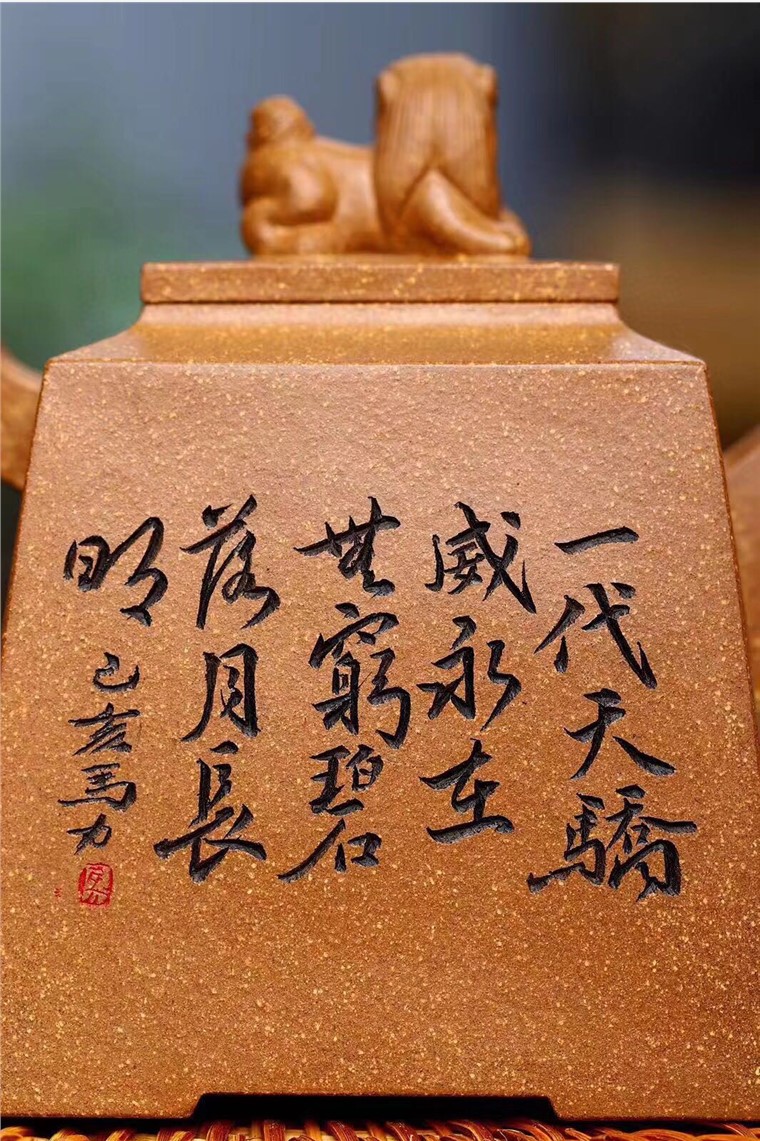 一代天驕
威永在
無窮碧
落月長
明
己亥馬力